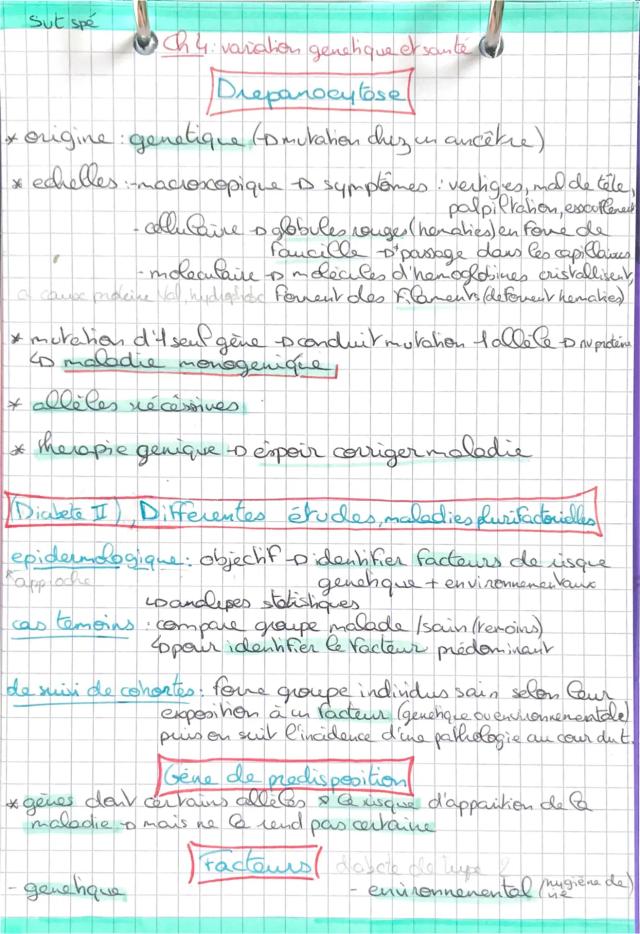 SVT spé
Ch 4: variation genetique et santé
Drepanocytose
* origine : genetique (→ mutation chez un ancêtre)
* echelles : - macroxopique → symptômes : vertiges, mal de tête,
palpiltration, essoufflement
- cellulaire → globules rouges (hematies) en forme de
faucille → passage dans les capillaires
- moleculaire → molécules d'hemoglobines cristallisent,
a cause proteine Val, hydrophobe forment des filaments (deforment hematies)
* mutation d'1 seul gène → conduit mutation 1 allèle → nv proteine
↳ maladie monogenique
* allèles récéssives
* therapie genique → espoir corriger maladie
(Diabete II), Differentes études, maladies plurifactorielles
epidermologique : objectif → identifier facteurs de risque
*approche
genetique + environnementaux
↳ analyses statistiques
cas temoins : compare groupe malade / sain (temoins)
↳ pour identifier le facteur prédominant
de suivi de cohortes : forme groupe individus sain selon leur
exposition à un facteur (genetique ou environnementale)
puis on suit l'incidence d'une pathologie au cour du t.
Gène de predisposition
* gènes dont certains allèles le risque d'apparition de la
maladie → mais ne la rend pas certaine
Facteurs diabete de type 2
- genetique
- environnemental (hygiène de vie)